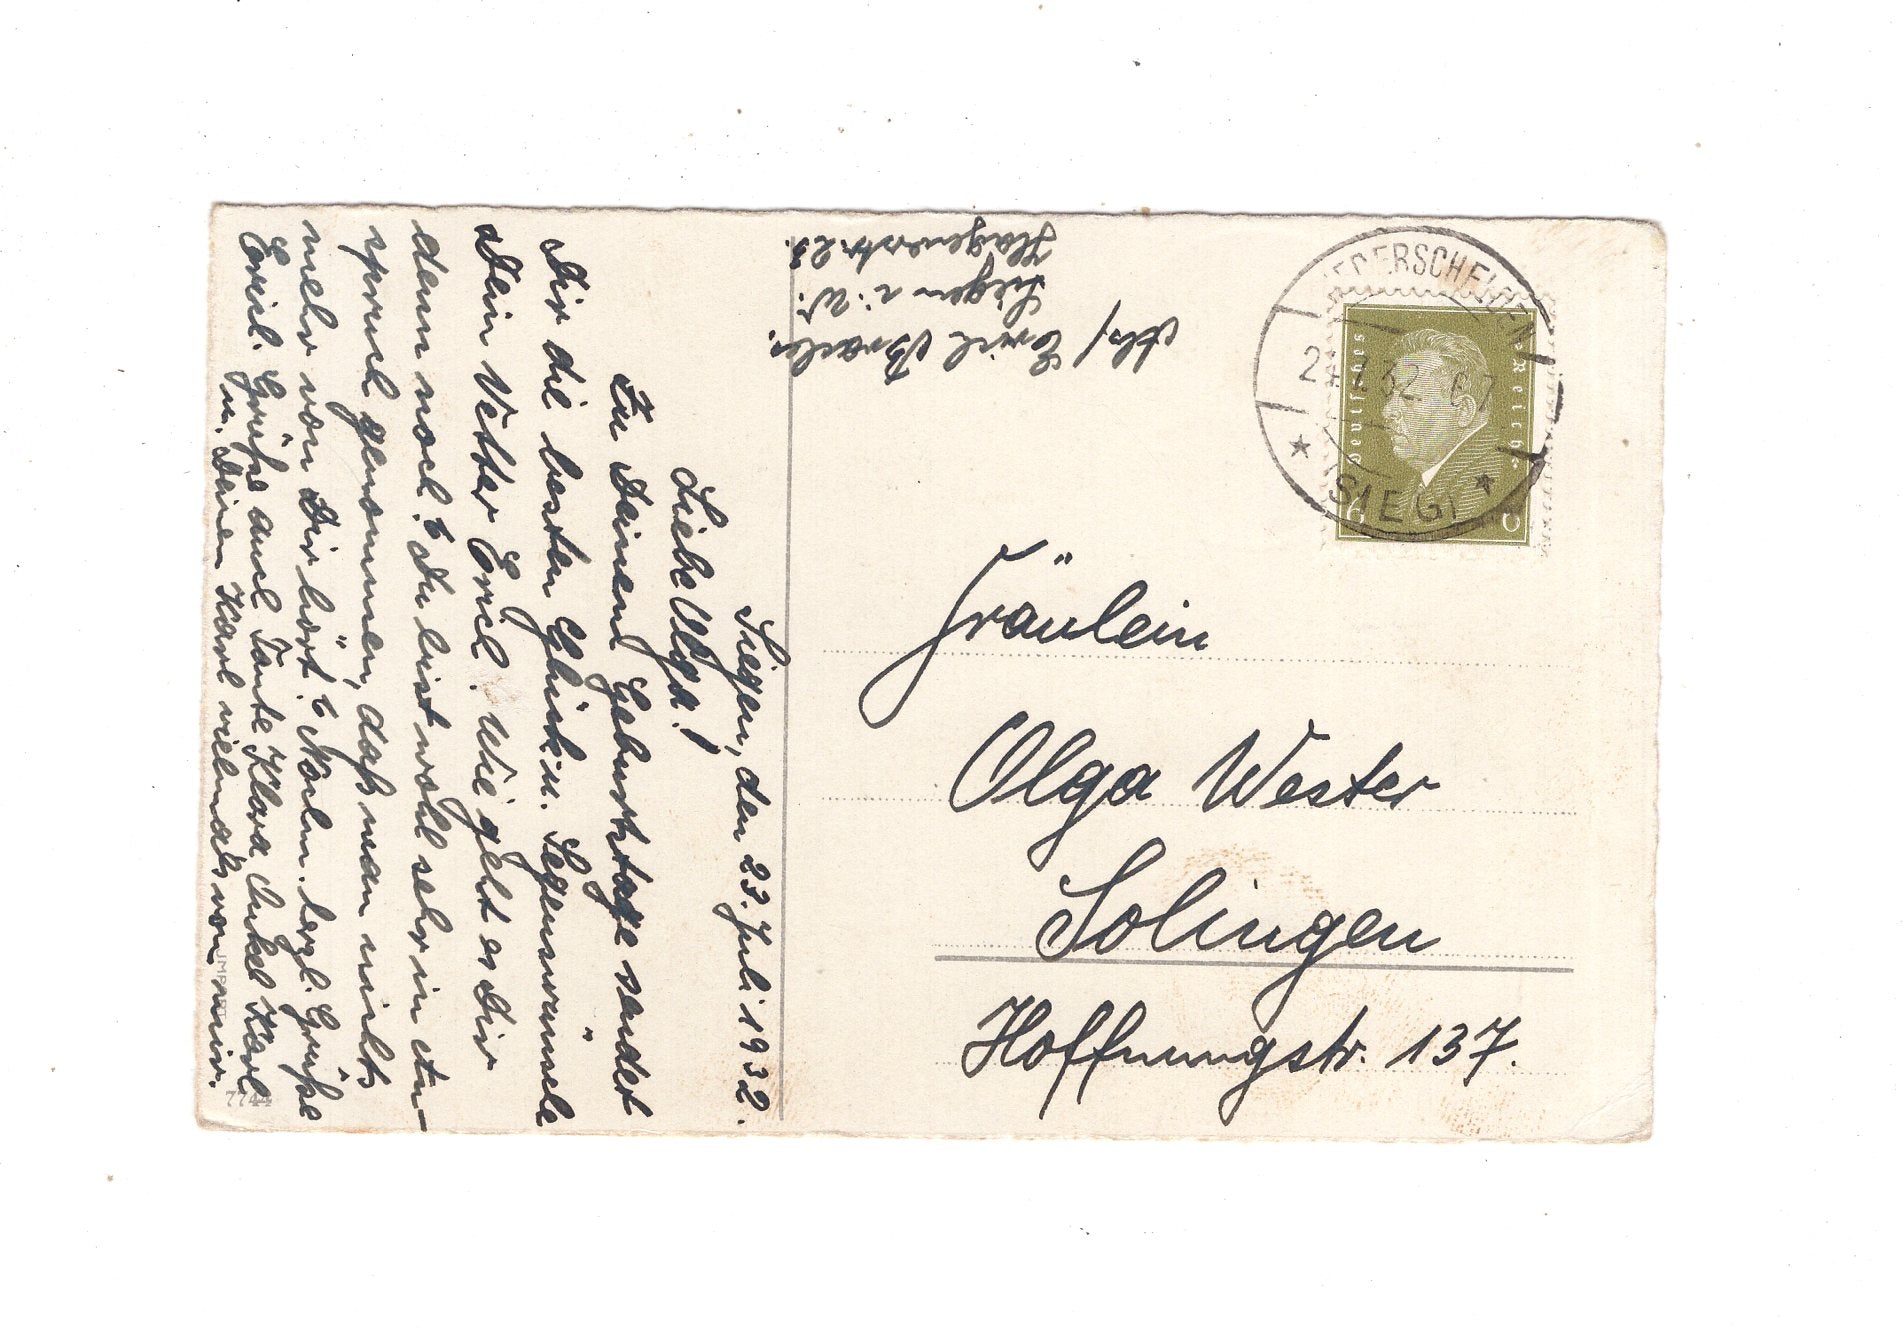 Siegen, den 23. Juli 1932.
Liebe Olga!
Zu Deinem Geburtstage sendet
Dir die besten Glück u. Segenswünsche
Dein Vetter Erich. Wie geht es Dir
denn noch? Du bist wohl sehr in An-
spruch genommen, daß man nichts
mehr von Dir hört? Nochm. herzl. Grüße
Erich. Grüße auch Tante Klara Onkel Karl
u. Deinen Karl vielmals von mir.
7744
Abs/ Erich
Siegen i. W.
Hagenerstr. 23.
NIEDERSCHELDEN
24.7.32
(SIEG)
Deutsches Reich
6 6
Fräulein
Olga Wester
Solingen
Hoffnungstr. 137.